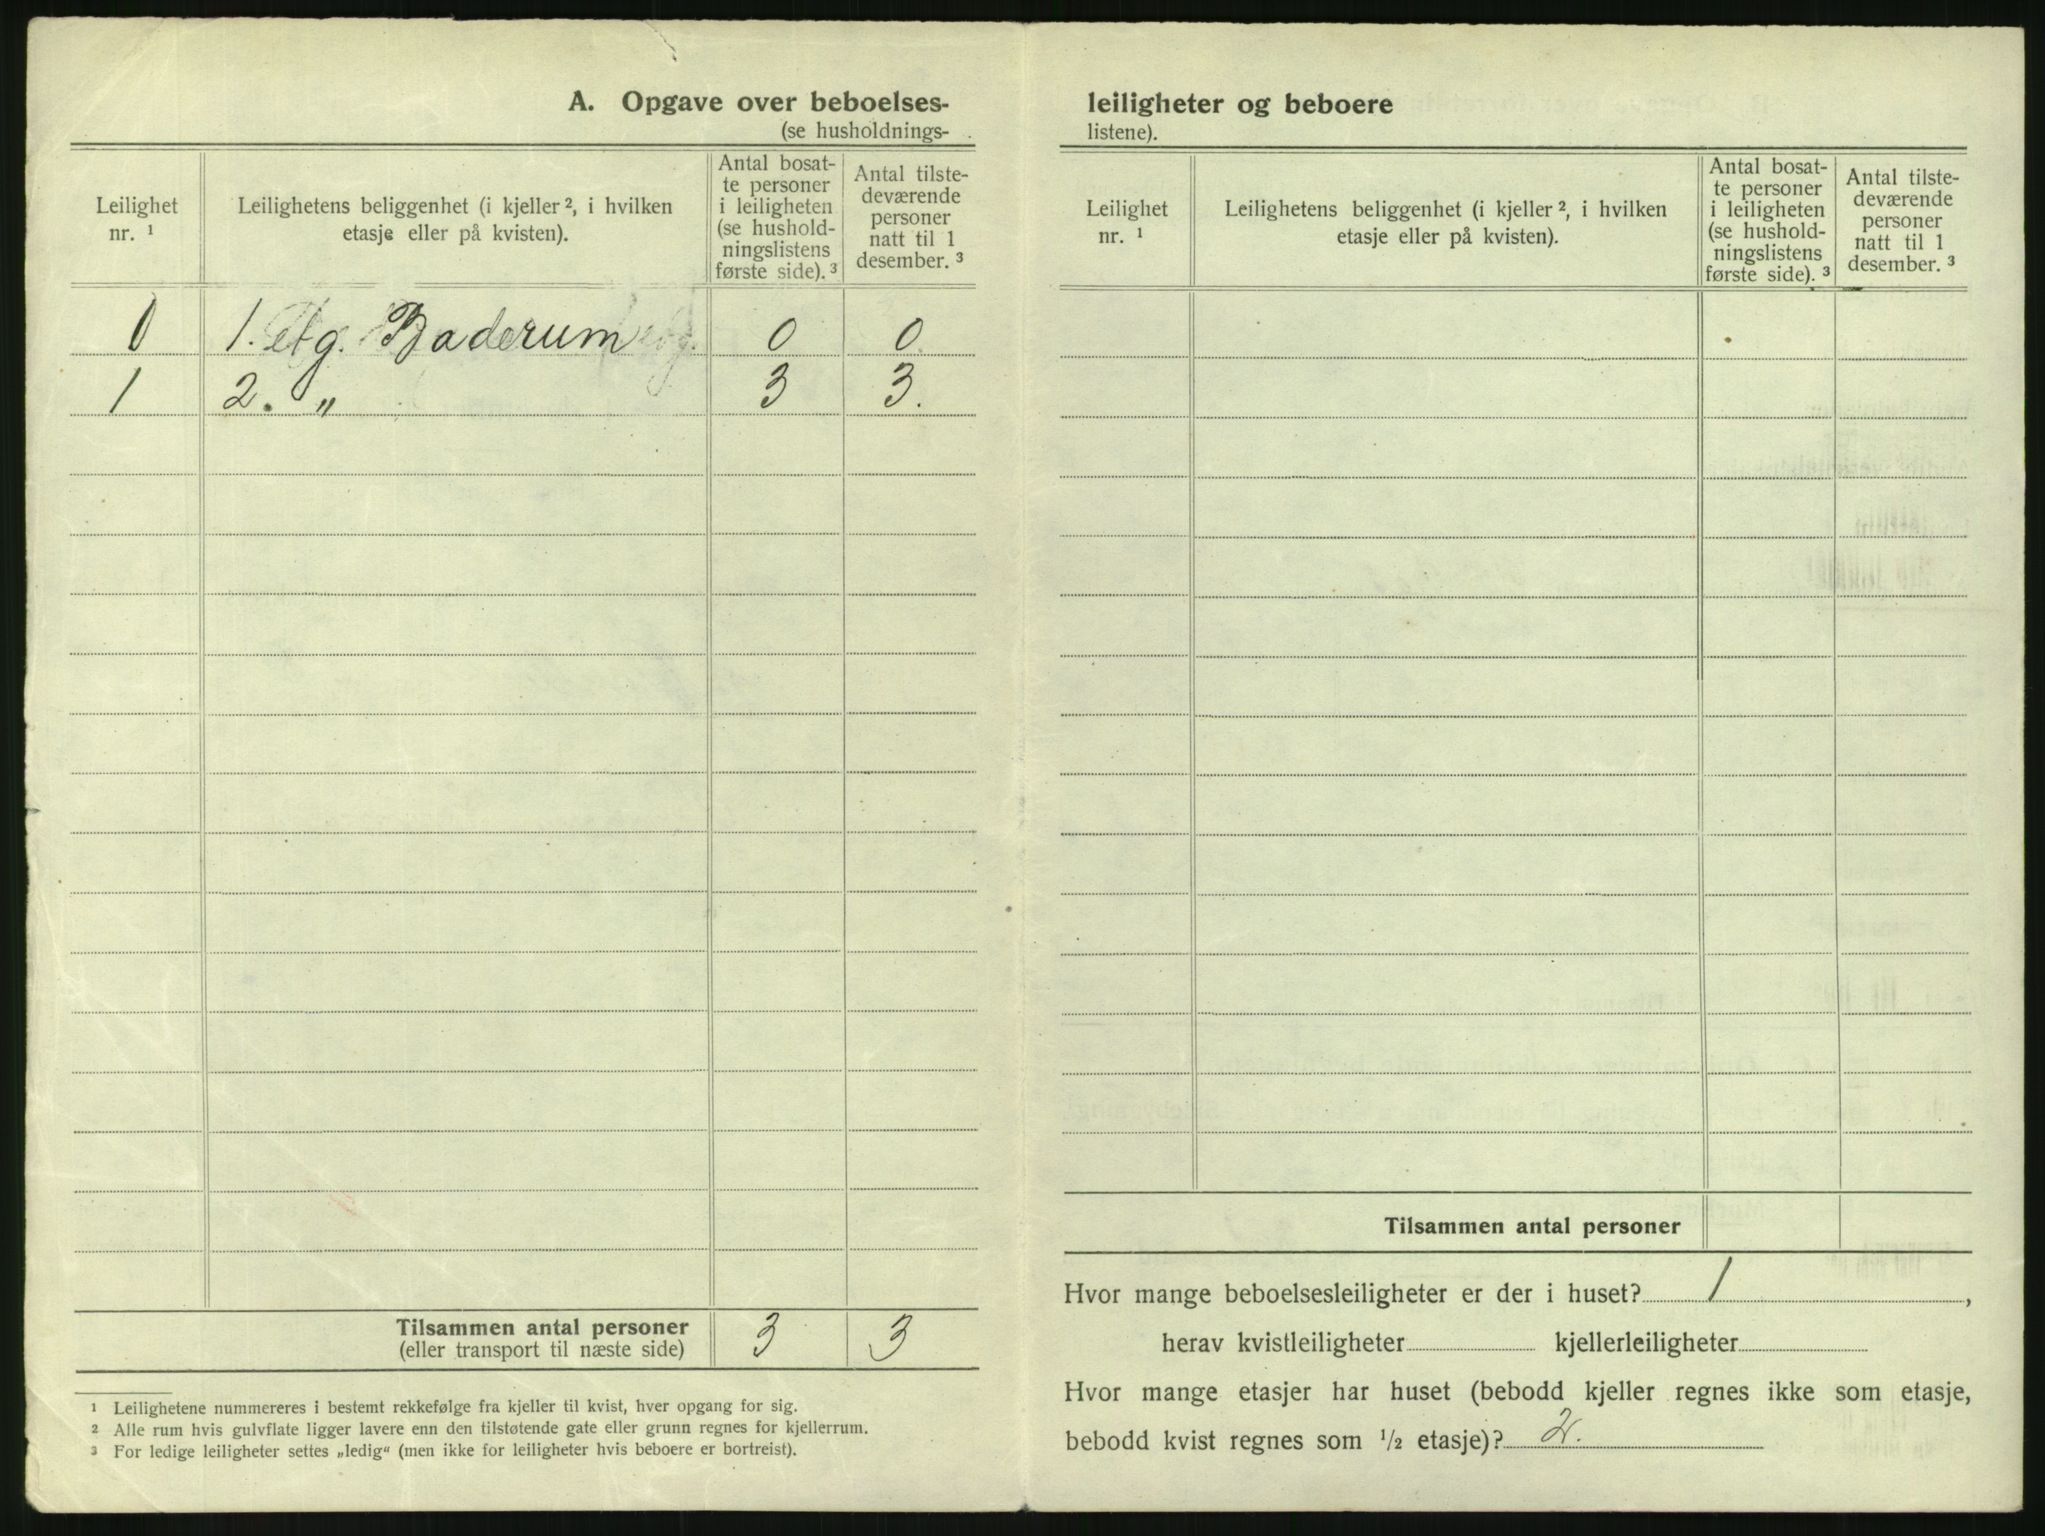 A. Opgave over beboelses-
(se husholdnings-
Leilighet
nr. ¹
Leilighetens beliggenhet (i kjeller ², i hvilken
etasje eller på kvisten).
Antal bosat-
te personer
i leiligheten
(se hushold-
ningslistens
første side). ³
Antal tilste-
deværende
personer
natt til 1
desember. ³
0 1. Etg. Baderum 0 0
1 2. „ 3 3.
Tilsammen antal personer 3 3
(eller transport til næste side)
¹ Leilighetene nummereres i bestemt rekkefølge fra kjeller til kvist, hver opgang for sig.
² Alle rum hvis gulvflate ligger lavere enn den tilstøtende gate eller grunn regnes for kjellerrum.
³ For ledige leiligheter settes „ledig“ (men ikke for leiligheter hvis beboere er bortreist).
leiligheter og beboere
listene).
Leilighet
nr. ¹
Leilighetens beliggenhet (i kjeller ², i hvilken
etasje eller på kvisten).
Antal bosat-
te personer
i leiligheten
(se hushold-
ningslistens
første side). ³
Antal tilste-
deværende
personer
natt til 1
desember. ³
Tilsammen antal personer
Hvor mange beboelsesleiligheter er der i huset? 1,
herav kvistleiligheter kjellerleiligheter
Hvor mange etasjer har huset (bebodd kjeller regnes ikke som etasje,
bebodd kvist regnes som ½ etasje)? 2.